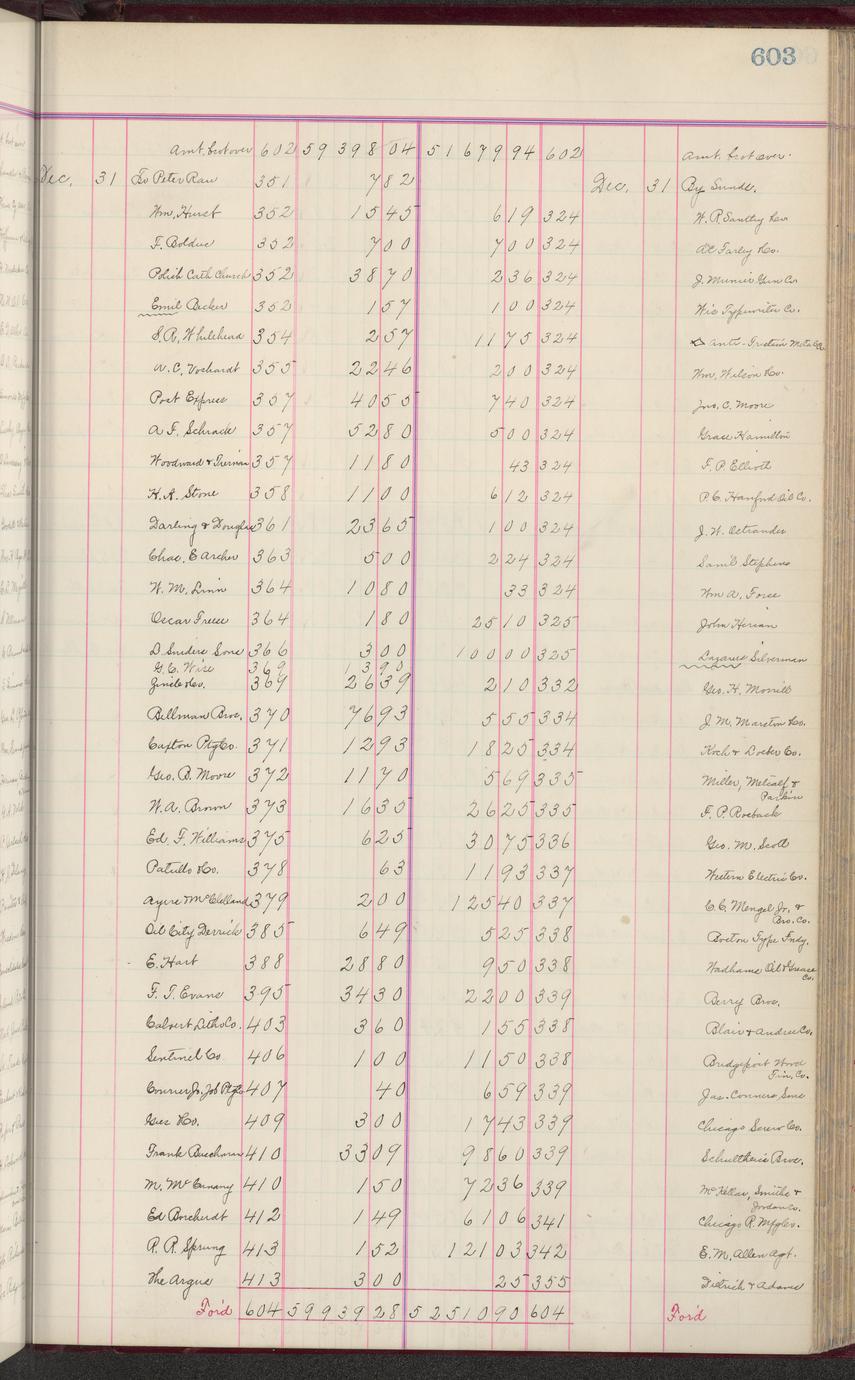 603
Amt. brot over 602 59 398 04 51 679 94 602 Amt. brot over.
Dec. 31 To Peter Rau 351 7 82 Dec. 31 By Sunds.
Wm. Hurst 352 15 45 6 19 324 W. P. Santley
F. Bolduc 352 7 00 7 00 324 Farley Co.
Polish Cath Church 352 38 70 2 36 324 J. Gun Co
Emil Becker 352 1 57 1 00 324 Wis Typewriter Co.
S. R. Whitehead 354 2 57 11 75 324 Anti-Friction Metal Co.
W. C. Voshardt 355 22 46 2 00 324 Wm. Wilson Co.
Post Express 357 40 55 7 40 324 Jno. C. Moore
A. F. Schrack 357 52 80 5 00 324 Grace Hamilton
Woodward & Tiernan 357 11 80 43 324 F. P. Elliott
H. A. Stone 358 11 00 6 12 324 P. C. Hanford Oil Co.
Darling & Douglas 361 23 65 1 00 324 J. W. Ostrander
Chas. E Archer 363 5 00 2 24 324 Saml Stephens
W. M. Linn 364 10 80 33 324 Wm A. Force
Oscar Freese 364 1 80 25 10 325 John
D. Sniders Sons 366 3 00 100 00 325 Lazarus Silverman
G. C. Wise 369 13 90
Co. 369 26 39 2 10 332 Geo. H. Morrill
Billman Bros. 370 76 93 5 55 334 J. M. Marston Co.
Caxton Ptg Co. 371 12 93 18 25 334 Koch & Loeber Co.
Geo. B. Moore 372 11 70 5 69 335 Miller, Metcalf &
Parkin
W. A. Brown 373 16 35 26 25 335 F. P. Roeback
Ed. F. Williams 375 6 25 30 75 336 Geo. M. Scott
Patullo Co. 378 63 11 93 337 Western Electric Co.
Ayers & McClelland 379 2 00 125 40 337 C. C. Mengel Jr. &
Bro. Co.
Oil City Derrick 385 6 49 5 25 338 Boston Type Fndy.
E. Hart 388 28 80 9 50 338 Wadhams Oil & Grease
Co.
F. T. Evans 395 34 30 22 00 339 Berry Bros.
Calvert Litho Co. 403 3 60 1 55 338 Blair & Andree Co.
Sentinel Co 406 1 00 11 50 338 Bridgeport Wood
Fin. Co.
Courier Jr. Job Ptg Co 407 40 6 59 339 Jas. Conners Sons
Gies Co. 409 3 00 17 43 339 Chicago Screw Co.
Frank 410 33 09 98 60 339 Schultheis Bros.
M. 410 1 50 72 36 339 McKellar, Smiths &
Jordan Co.
Ed Borcherdt 412 1 49 61 06 341 Chicago R. Mfg Co.
R. R. Sprung 413 1 52 121 03 342 E. M. Allen Agt.
The Argus 413 3 00 25 355 Dietrich & Adams
Fo'd 604 59 939 28 52 510 90 604 Fo'd